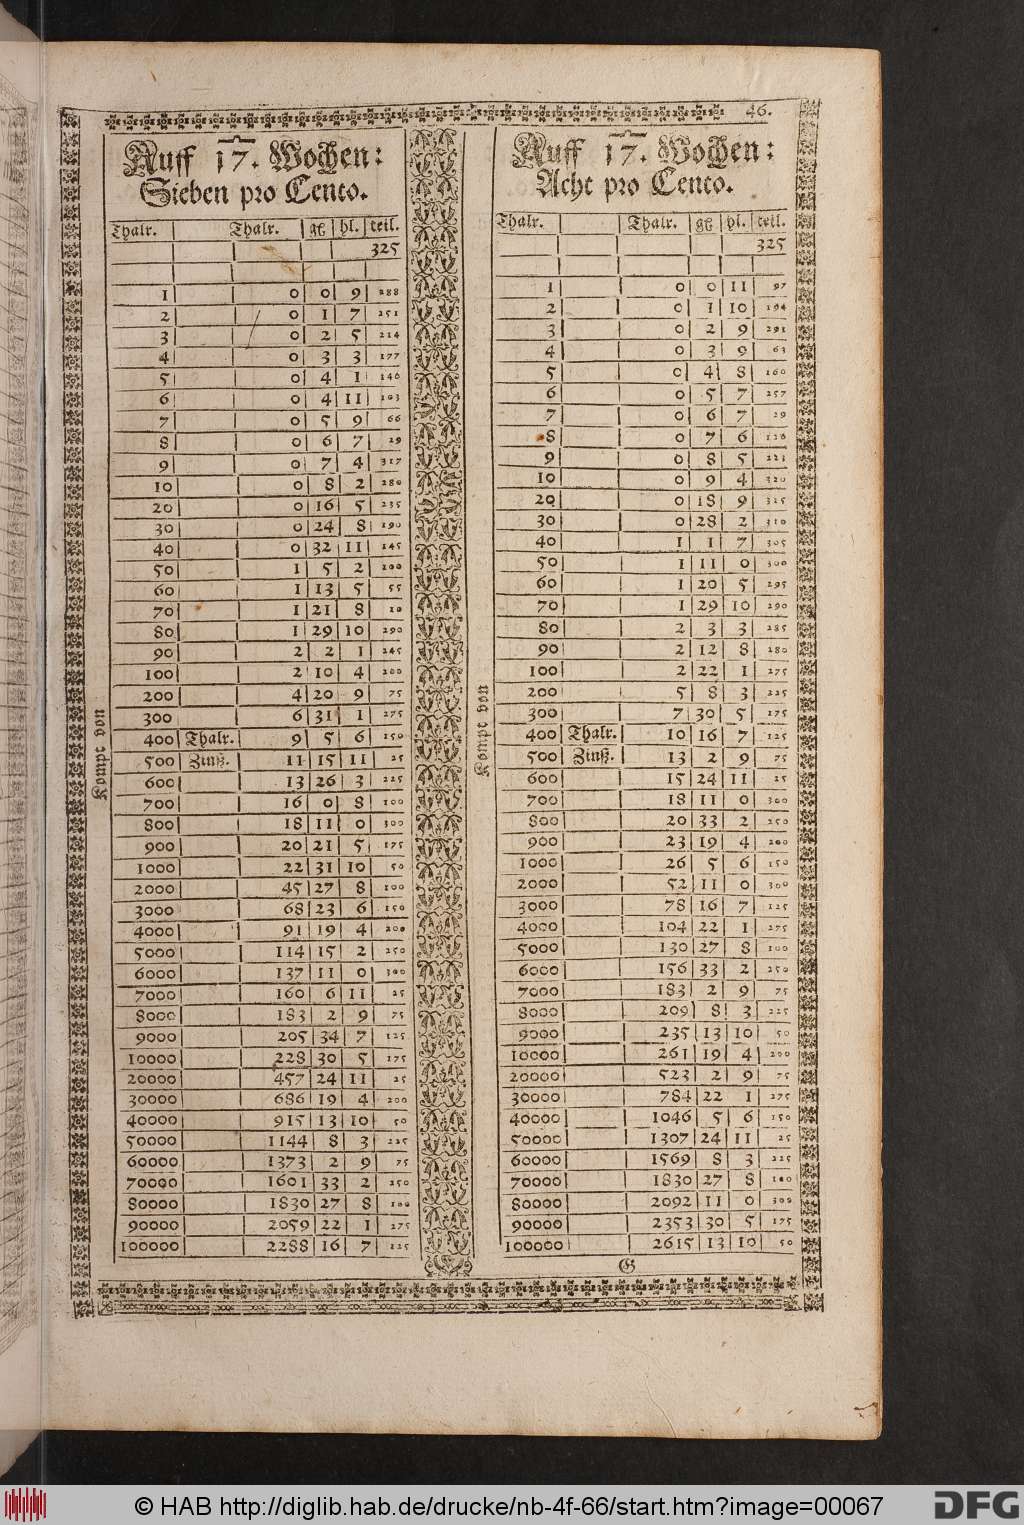 46.
Auff 17. Wochen:
Sieben pro Cento.
Thalr. Thalr. gß hl. teil.
325
1 0 0 9 288
2 0 1 7 251
3 0 2 5 214
4 0 3 3 177
5 0 4 1 140
6 0 4 11 103
7 0 5 9 66
8 0 6 7 29
9 0 7 4 317
10 0 8 2 280
20 0 16 5 235
30 0 24 8 190
40 0 32 11 145
50 1 5 2 100
60 1 13 5 55
70 1 21 8 10
80 1 29 10 290
90 2 2 1 245
100 2 10 4 200
200 4 20 9 75
300 6 31 1 275
400 Thalr. 9 5 6 150
500 Zinß. 11 15 11 25
600 13 26 3 225
700 16 0 8 100
800 18 11 0 300
900 20 21 5 175
1000 22 31 10 50
2000 45 27 8 100
3000 68 23 6 150
4000 91 19 4 200
5000 114 15 2 250
6000 137 11 0 300
7000 160 6 11 25
8000 183 2 9 75
9000 205 34 7 125
10000 228 30 5 175
20000 457 24 11 25
30000 686 19 4 200
40000 915 13 10 50
50000 1144 8 3 225
60000 1373 2 9 75
70000 1601 33 2 250
80000 1830 27 8 100
90000 2059 22 1 275
100000 2288 16 7 125
Kompt von
Auff 17. Wochen:
Acht pro Cento.
Thalr. Thalr. gß hl. teil.
325
1 0 0 11 97
2 0 1 10 194
3 0 2 9 291
4 0 3 9 63
5 0 4 8 160
6 0 5 7 257
7 0 6 7 29
8 0 7 6 126
9 0 8 5 223
10 0 9 4 320
20 0 18 9 315
30 0 28 2 310
40 1 1 7 305
50 1 11 0 300
60 1 20 5 295
70 1 29 10 290
80 2 3 3 285
90 2 12 8 280
100 2 22 1 275
200 5 8 3 225
300 7 30 5 175
400 Thalr. 10 16 7 125
500 Zinß. 13 2 9 75
600 15 24 11 25
700 18 11 0 300
800 20 33 2 250
900 23 19 4 200
1000 26 5 6 150
2000 52 11 0 300
3000 78 16 7 125
4000 104 22 1 275
5000 130 27 8 100
6000 156 33 2 250
7000 183 2 9 75
8000 209 8 3 225
9000 235 13 10 50
10000 261 19 4 200
20000 523 2 9 75
30000 784 22 1 275
40000 1046 5 6 150
50000 1307 24 11 25
60000 1569 8 3 225
70000 1830 27 8 100
80000 2092 11 0 300
90000 2353 30 5 175
100000 2615 13 10 50
Kompt von
G
© HAB http://diglib.hab.de/drucke/nb-4f-66/start.htm?image=00067
DFG